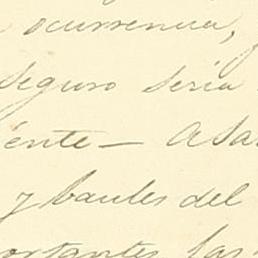 ocurrencia,
seguro sería
ente — Asa
y baules del
ortantes las